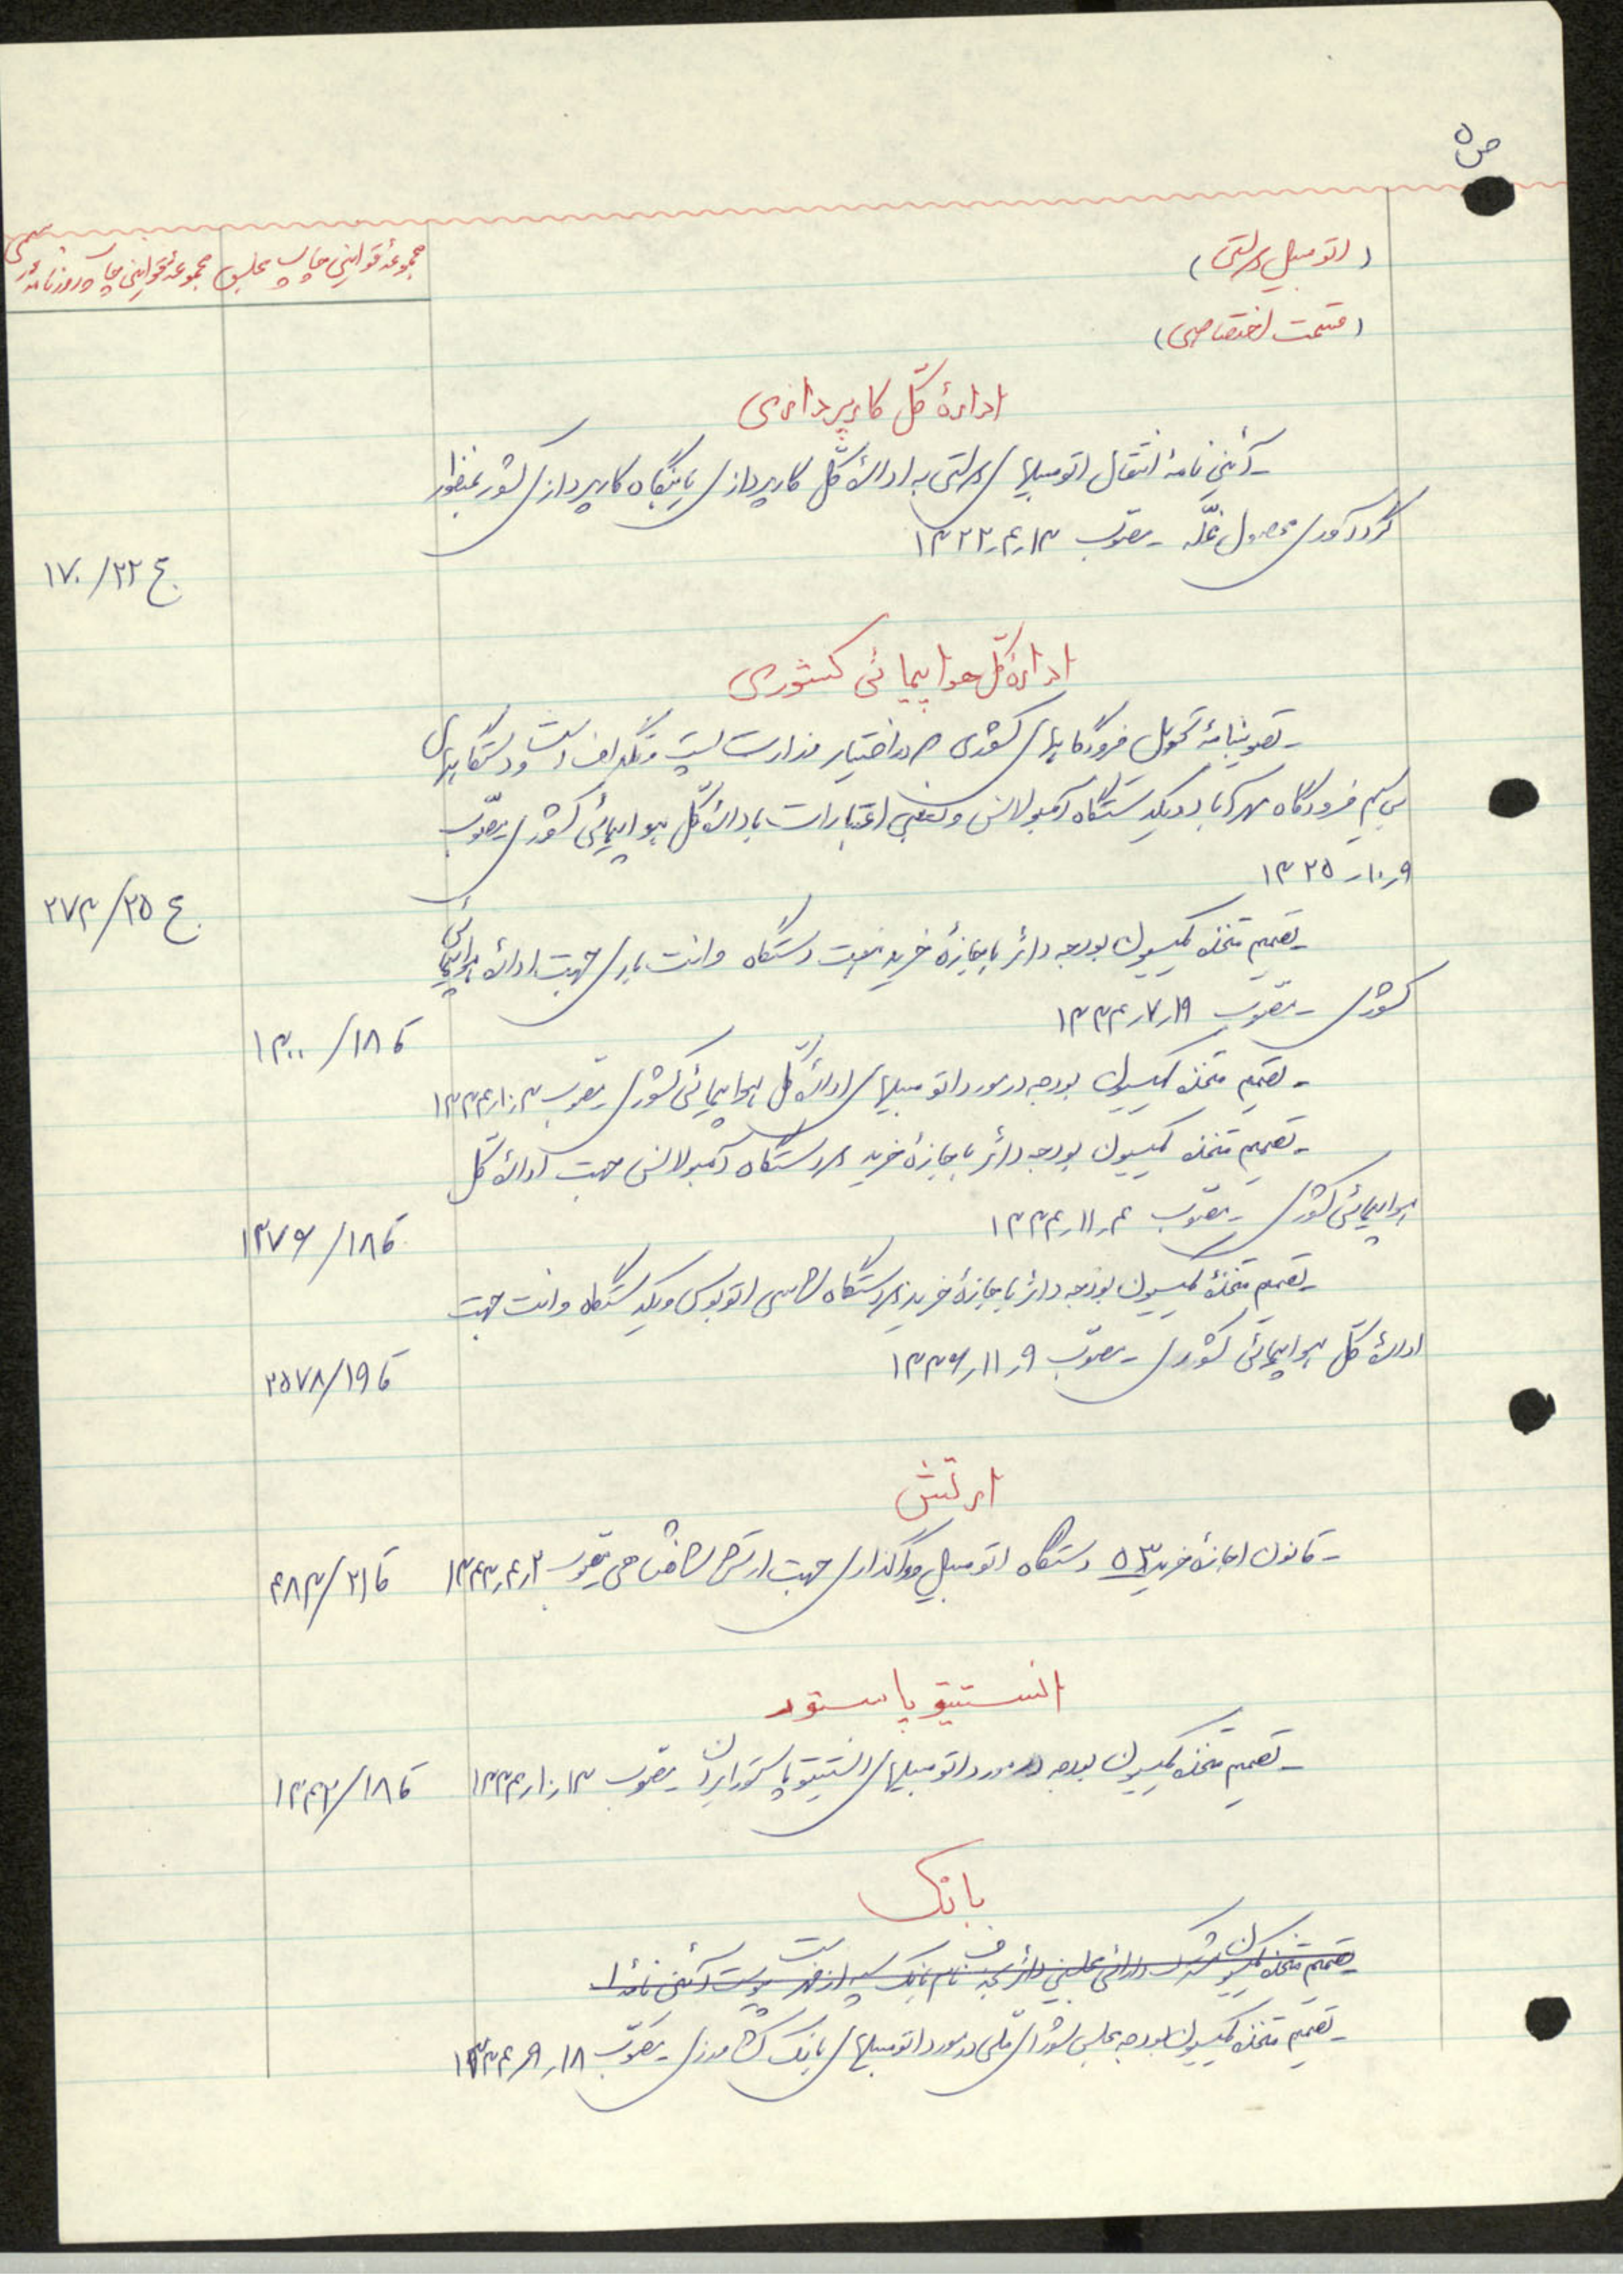 ص ۵
(اتومبیل دولتی)
(قسمت اختصاصی)
مجموعهٔ قوانین چاپ مجلس
مجموعهٔ قوانین چاپ روزنامهٔ رسمی
ادارهٔ کل کارپردازی
- آئین نامهٔ انتقال اتومبیلهای دولتی به ادارهٔ کل کارپردازی یا بنگاه کارپردازی کشور بمنظور
گردآوری محصول غلّه - مصوّب ۱۳ر۴ر۱۳۲۲
ع ۲۲/۱۷۰
ادارهٔ کل هواپیمائی کشوری
- تصویبنامهٔ تحویل فرودگاههای کشوری که در اختیار وزارت پست و تلگراف است و دستگاههای
بی سیم فرودگاه مهرآباد و یکدستگاه آمبولانس و اعتبارات با دارهٔ کل هواپیمائی کشوری - مصوّب
۹ر۱۰ر۱۳۲۵
ع ۲۵/۲۷۳
- تصمیم متخذه کمیسیون بودجه دائر باجازهٔ خرید دستگاه وانت باری جهت ادارهٔ هواپیمائی
کشوری - مصوّب ۱۹ر۷ر۱۳۳۴
ق ۱۸/۱۳۰۰
- تصمیم متخذه کمیسیون بودجه در مورد اتومبیلهای ادارهٔ کل هواپیمائی کشوری - مصوب ۳ر۱۰ر۱۳۳۴
- تصمیم متخذه کمیسیون بودجه دائر باجازهٔ خرید دو دستگاه آمبولانس جهت ادارهٔ کل
هواپیمائی کشوری - مصوّب ۴ر۱۱ر۱۳۳۴
ق ۱۸/۱۳۷۶
- تصمیم متخذهٔ کمیسیون بودجه دائر باجازهٔ خرید دو دستگاه شاسی اتوبوس و یکدستگاه وانت جهت
ادارهٔ کل هواپیمائی کشوری - مصوّب ۹ر۱۱ر۱۳۳۷
ق ۱۹/۲۵۷۸
ارتش
- قانون اجازهٔ خرید ۵۳ دستگاه اتومبیل و واگذاری جهت ارتش شاهنشاهی مصوب ۲ر۴ر۱۳۴۳
ق ۲۱/۴۸۳
انستیتو پاستور
- تصمیم متخذه کمیسیون بودجه در مورد اتومبیلهای انستیتو پاستور ایران - مصوّب ۱۳ر۱۰ر۱۳۳۴
ق ۱۸/۱۳۴۲
بانک
- تصمیم متخذه کمیسیون مشترک دارائی مجلسین دائر بحذف نام بانک سپه از فهرست پیوست آئین نامهٔ
- تصمیم متخذه کمیسیون بودجه مجلس شورای ملّی در مورد اتومبیلهای بانک کشاورزی - مصوّب ۱۸ر۹ر۱۳۳۴